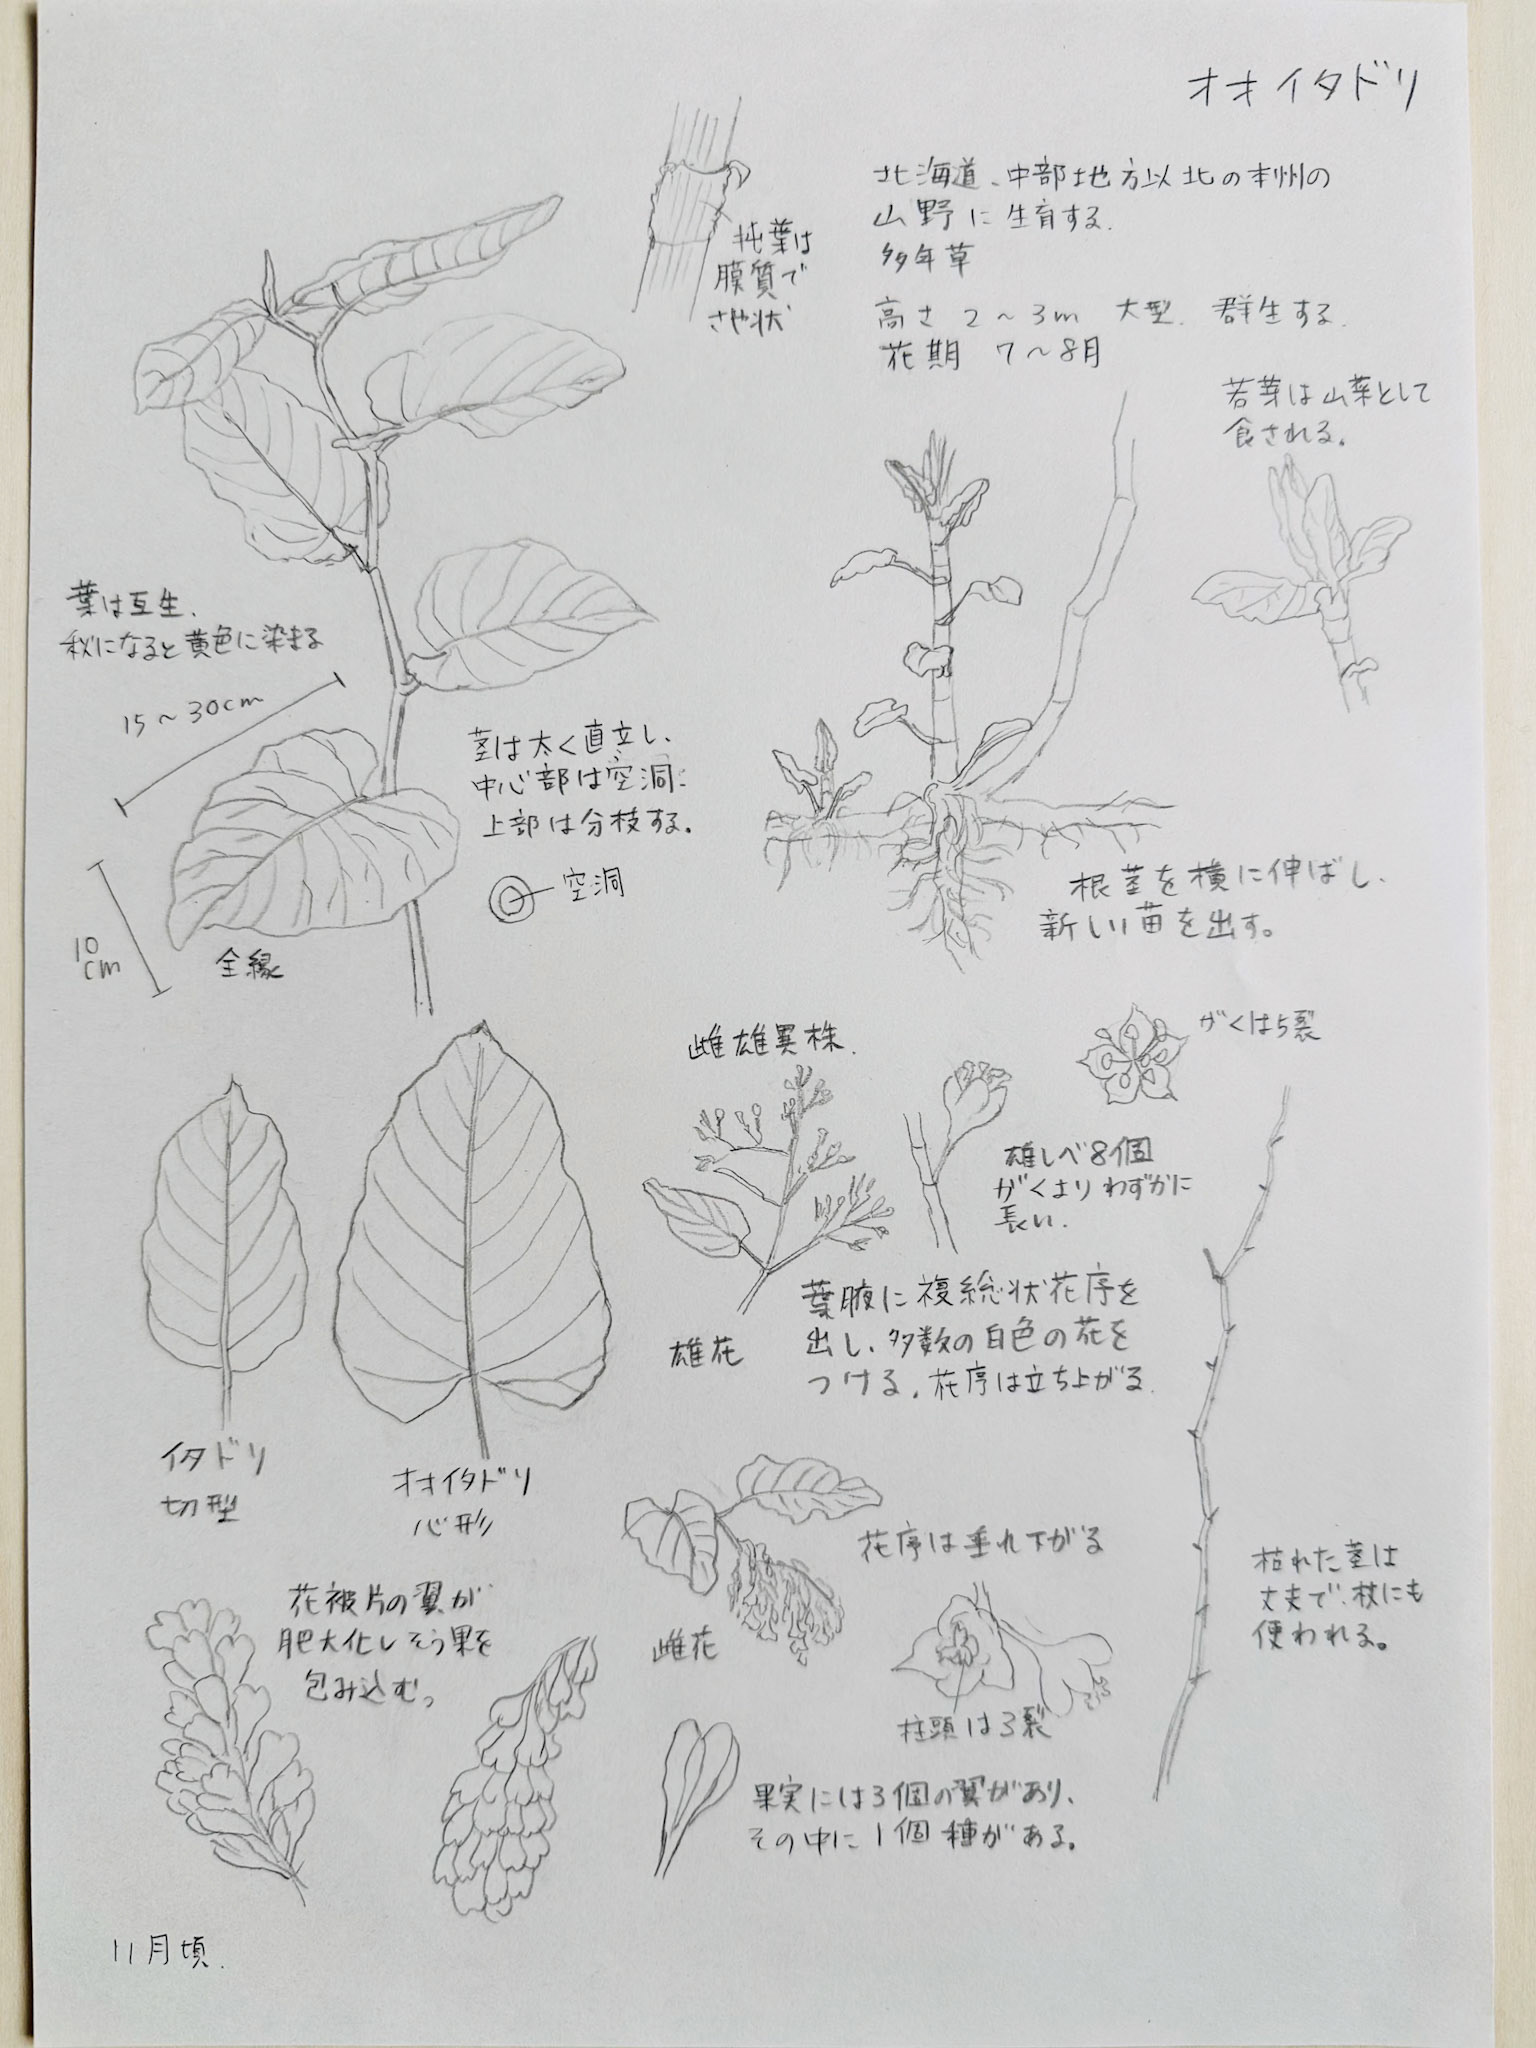 オオイタドリ
北海道、中部地方以北の本州の
山野に生育する。
多年草
高さ 2〜3m 大型、群生する。
花期 7〜8月
托葉は
膜質で
さや状
若芽は山菜として
食される。
葉は互生、
秋になると黄色に染まる
15〜30cm
10
cm
全縁
茎は太く直立し、
中心部は空洞。
上部は分枝する。
空洞
根茎を横に伸ばし、
新しい苗を出す。
雌雄異株。
がくは5裂
雄しべ8個
がくよりわずかに
長い。
葉腋に複総状花序を
出し、多数の白色の花を
つける。花序は立ち上がる。
雄花
イタドリ
切型
オオイタドリ
心形
花序は垂れ下がる
雌花
柱頭は3裂
枯れた茎は
丈夫で、杖にも
使われる。
花被片の翼が
肥大化しそう果を
包み込む。
果実には3個の翼があり、
その中に1個種がある。
11月頃。